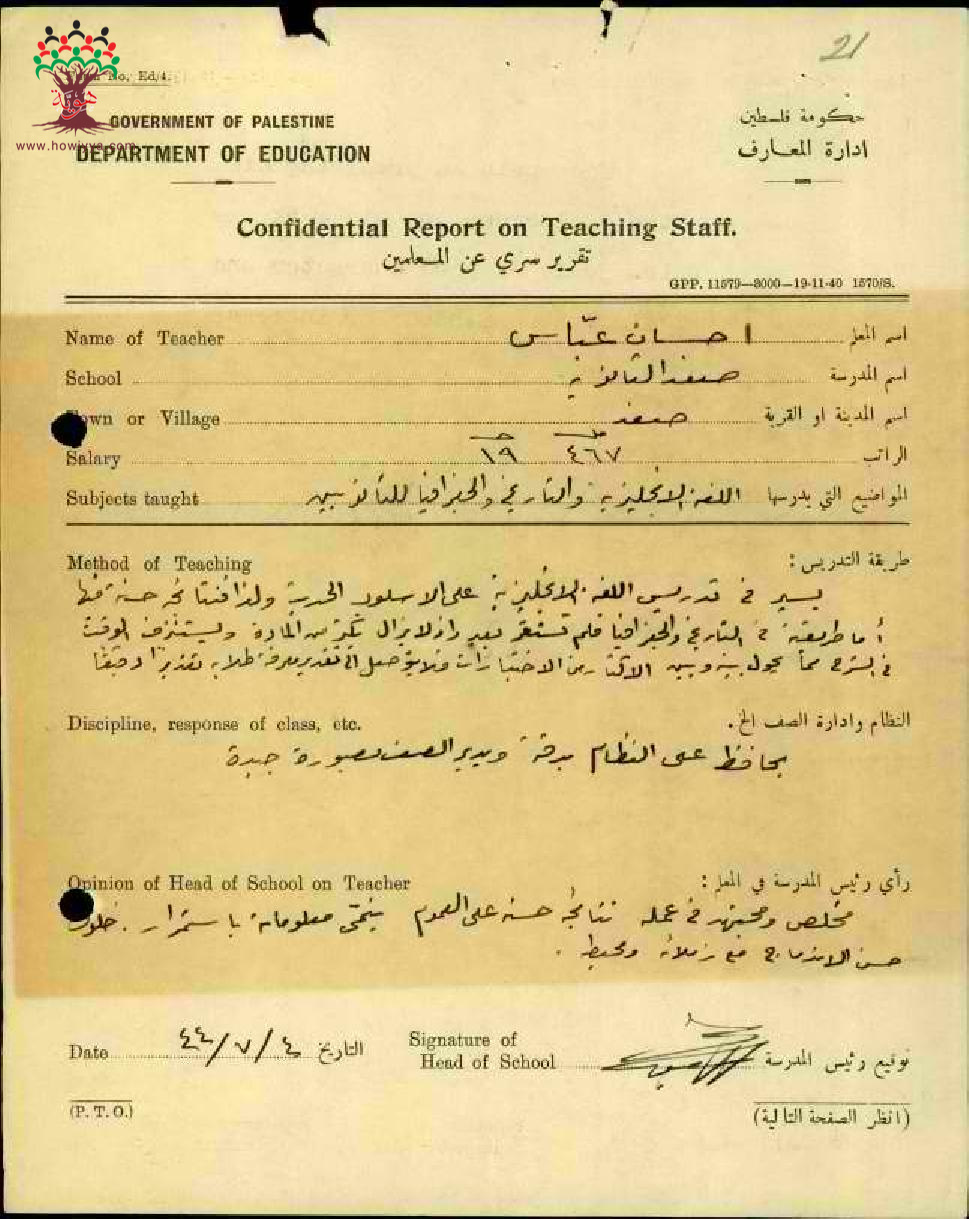 21
Form No. Ed/4.
هوية
www.howiyya.com
GOVERNMENT OF PALESTINE
حكومة فلسطين
DEPARTMENT OF EDUCATION
ادارة المعارف
Confidential Report on Teaching Staff.
تقرير سري عن المعلمين
GPP. 11579—3000—19-11-40 1570/S.
Name of Teacher احسان عبّاس اسم المعلم
School صفد الثانوية اسم المدرسة
Town or Village صفد اسم المدينة او القرية
Salary ٤٦٧ ١٩ الراتب
Subjects taught اللغة الانجليزية والتاريخ والجغرافيا للثانويين المواضيع التي يدرسها
Method of Teaching طريقة التدريس :
يسير في تدريس اللغة الانجليزية على الاسلوب الحديث ولذا فنتائجه حسنة فيها
أما طريقته في التاريخ والجغرافيا فلم تستقر بعد إذ لا يزال يكثر من المادة ويستنزف الوقت
في الشرح مما يحول بينه وبين الاكثار من الاختبارات فلا يتوصل الى تقدير معرفة طلابه تقديرا دقيقا
Discipline, response of class, etc. النظام وادارة الصف الخ.
يحافظ على النظام بدقة ويدير الصف بصورة جيدة
Opinion of Head of School on Teacher رأي رئيس المدرسة في المعلم :
مخلص ومجتهد في عمله نتائجه حسنة على العموم ينمّي معلوماته باستمرار . خلوق
حسن الاندماج مع زملائه ومحيطه .
Date ٤٤/٧/٤ التاريخ
Signature of Head of School توقيع رئيس المدرسة
(P. T. O.) (انظر الصفحة التالية)